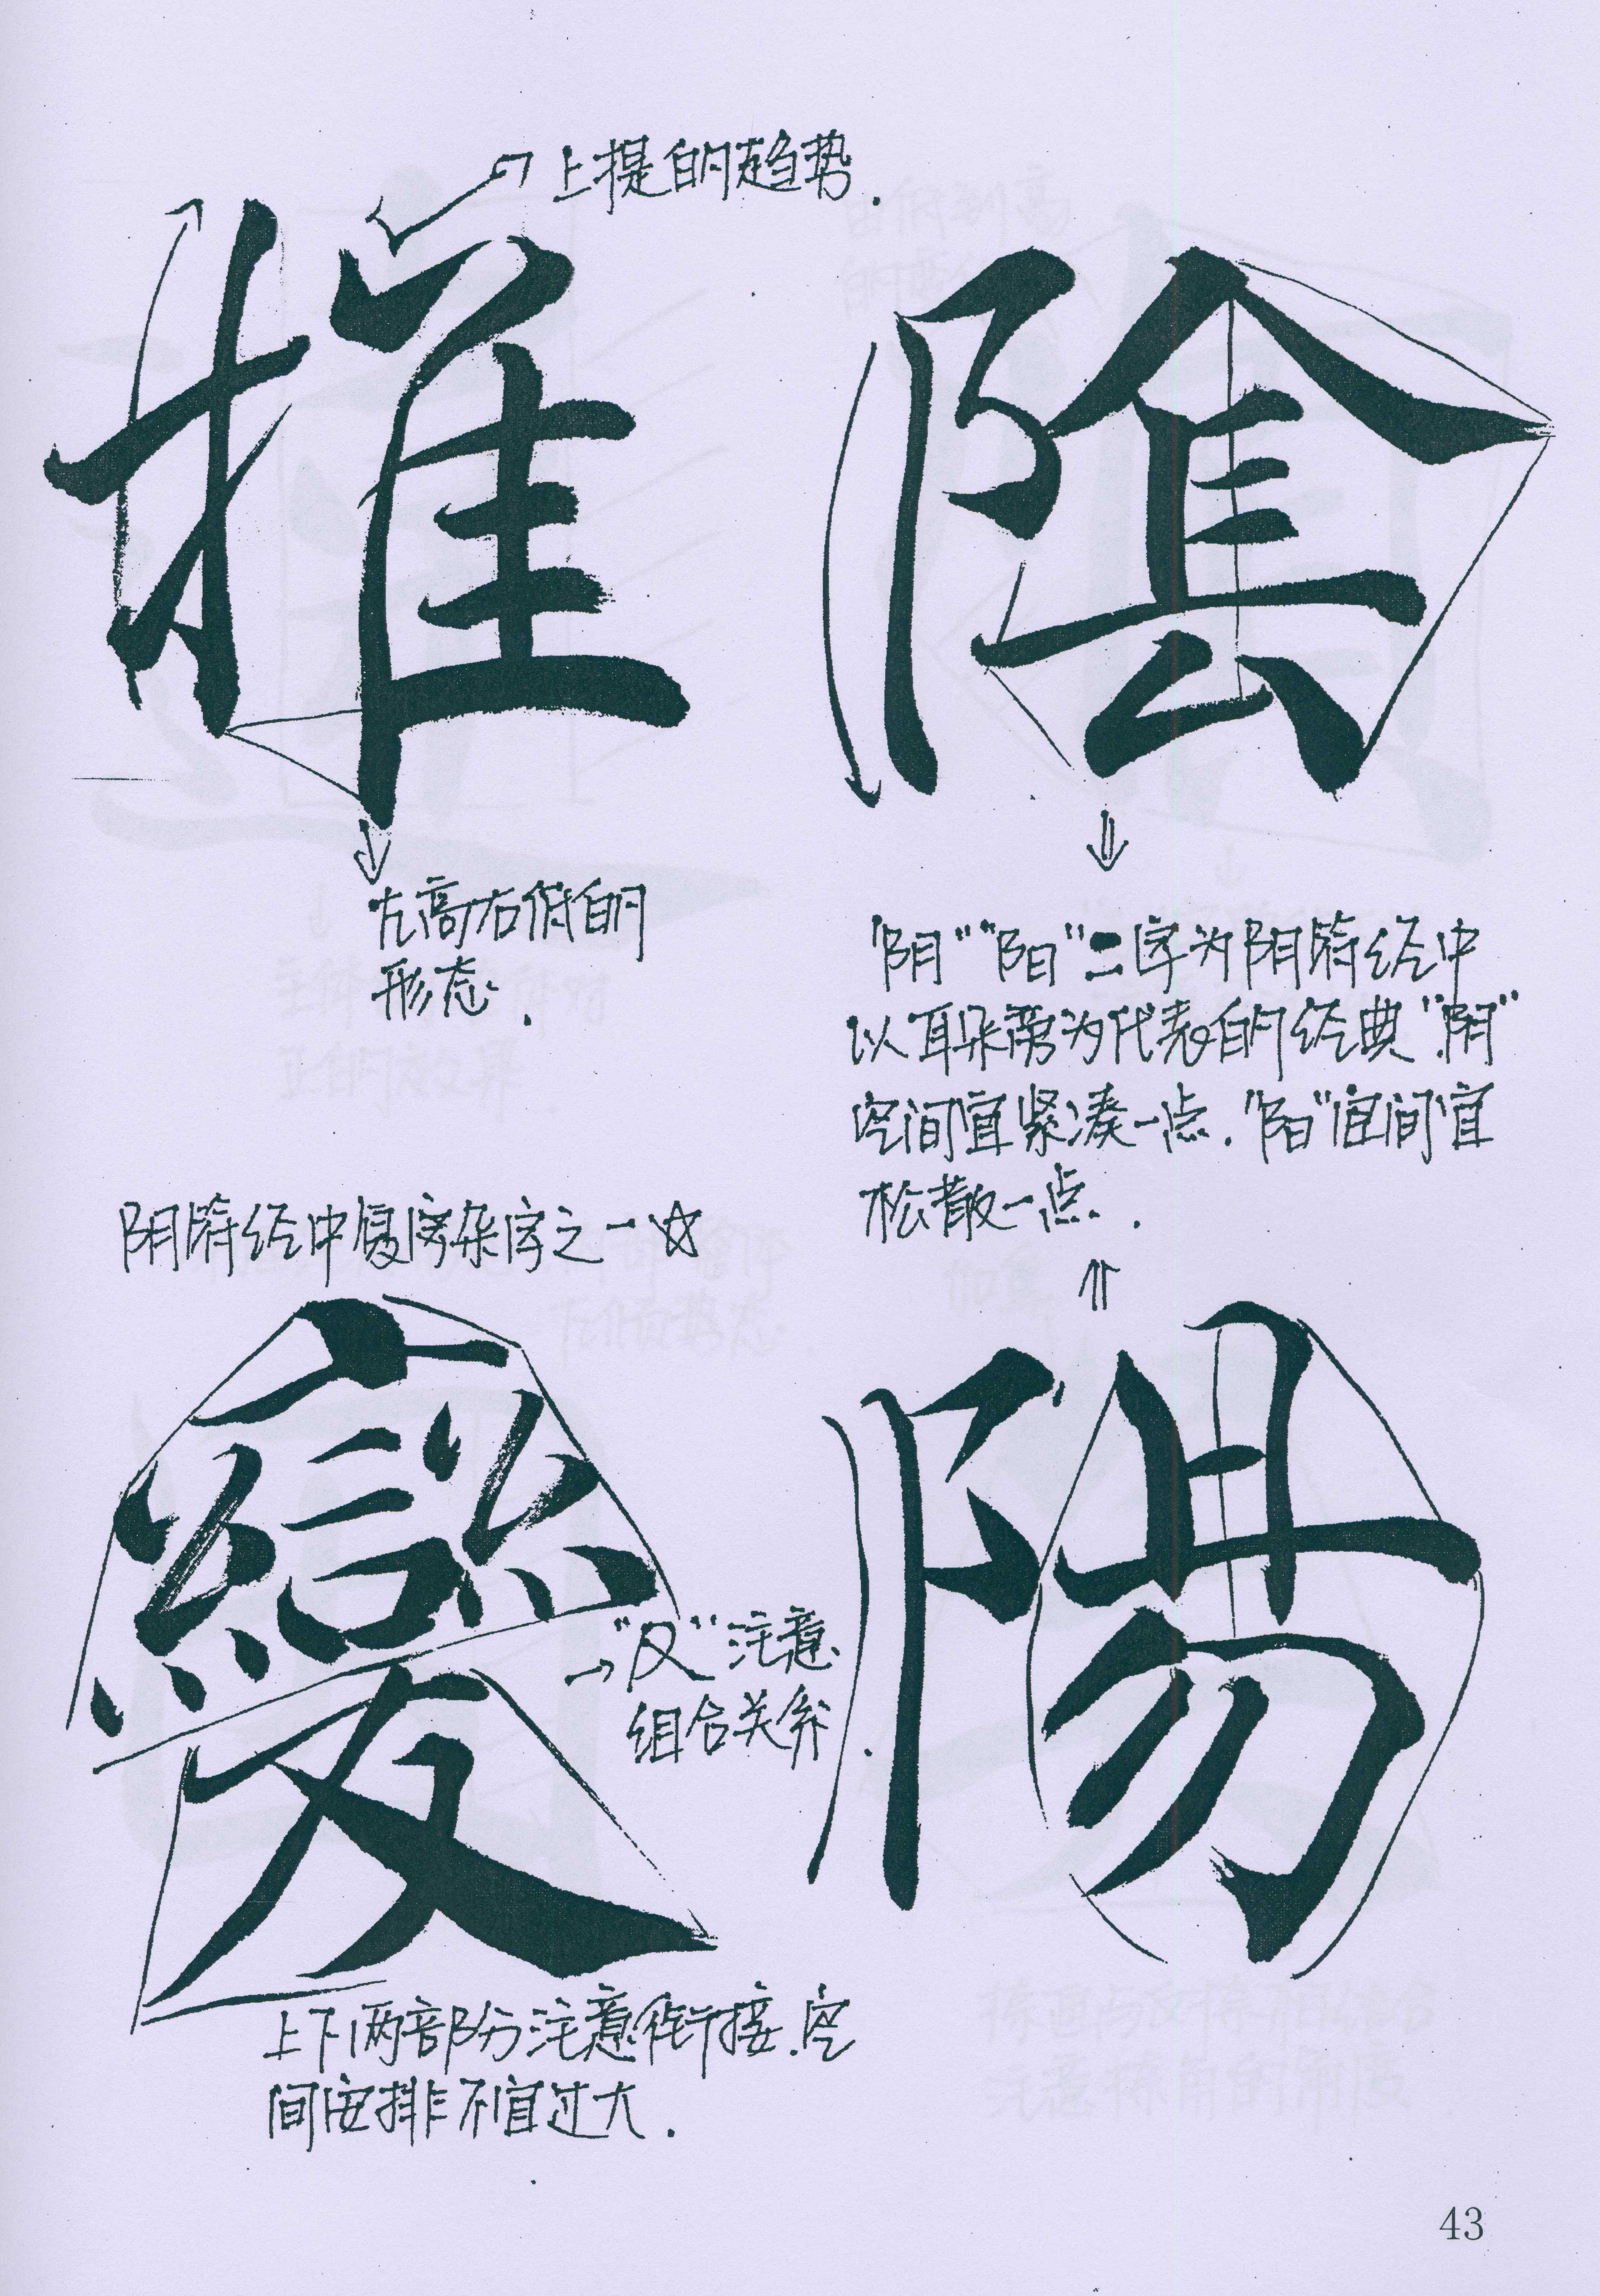 上提的趋势.
推
陰
左高右低的
形态.
“阴”“阳”二字为阴符经中
以耳朵旁为代表的经典“阴”
空间宜紧凑一点.“阳”宜间宜
松散一点.
阴符经中复杂字之一☆
變
陽
“又”注意
组合关系.
上下两部分注意衔接.空
间安排不宜过大.
43